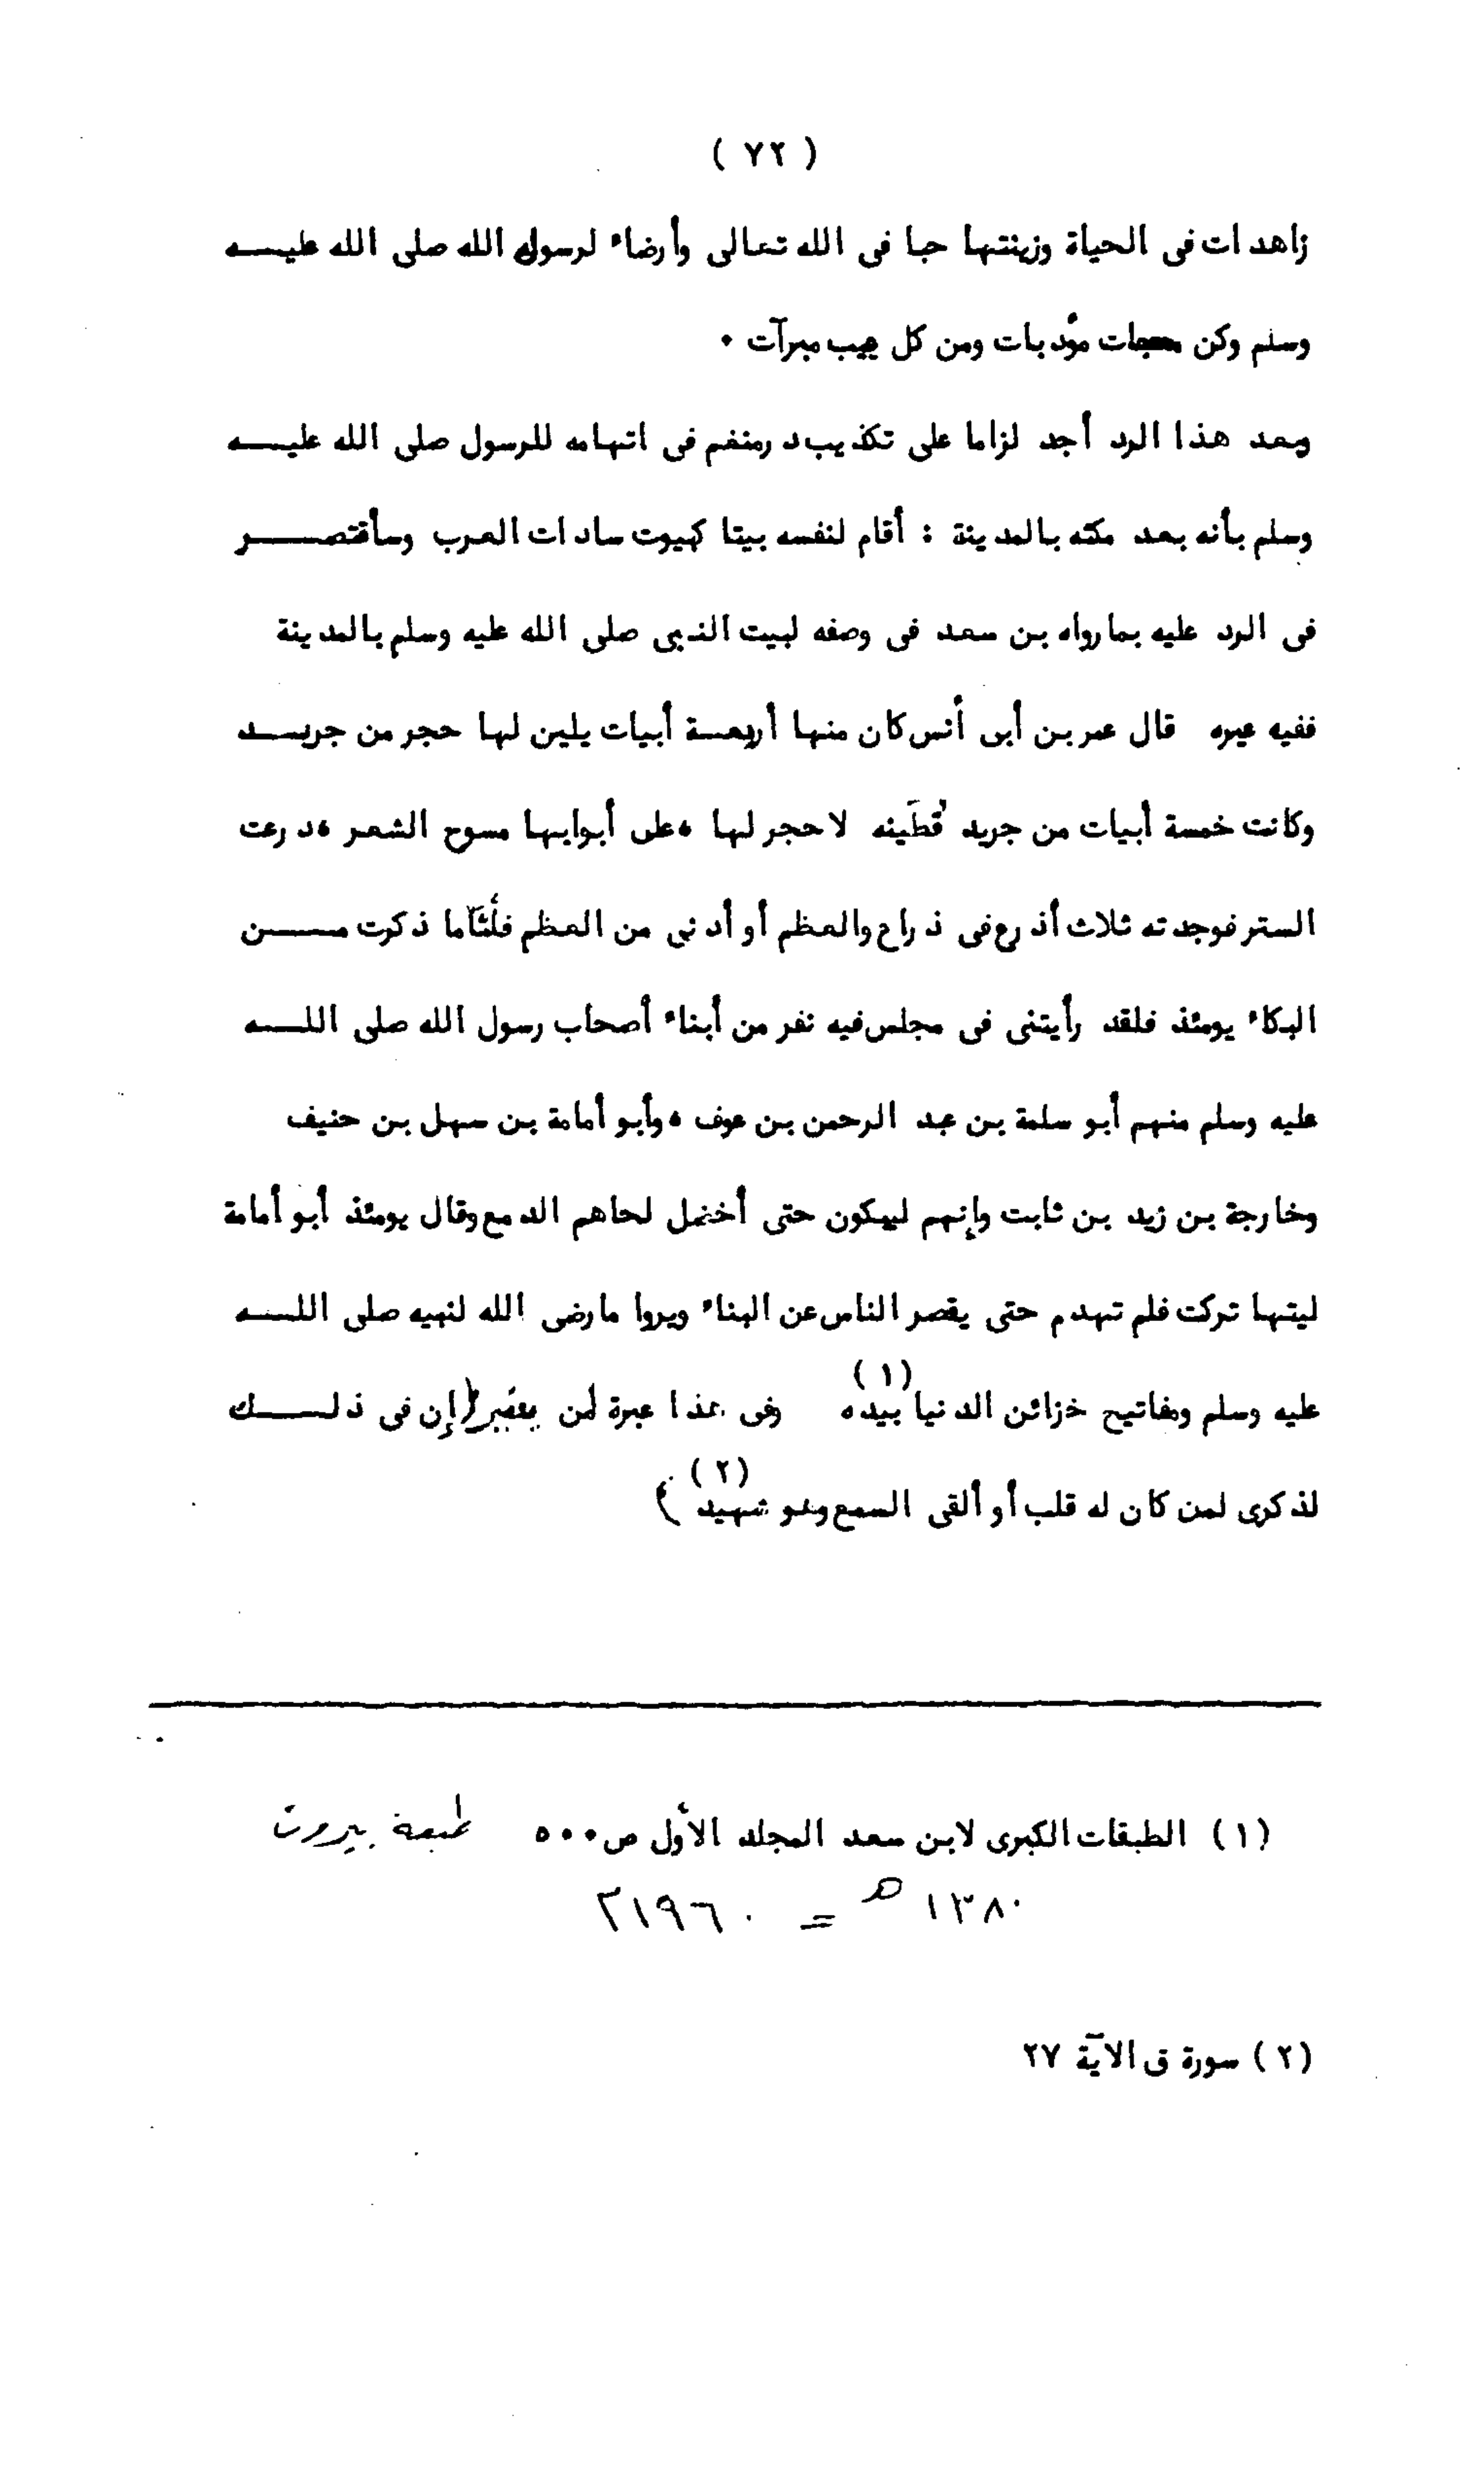 ( ٧٢ )
زاهدات فى الحياة وزينتها حبا فى الله تعالى وأرضاء لرسول الله صلى الله عليه
وسلم وكن مؤدبات ومن كل عيب مبرآت .
وبعد هذا الرد أجد لزاما على تكذيب درمنغم فى اتهامه للرسول صلى الله عليه
وسلم بأنه بعد مكثه بالمدينة : أقام لنفسه بيتا كبيوت سادات العرب وسأقتصر
فى الرد عليه بما رواه بن سعد فى وصفه لبيت النبى صلى الله عليه وسلم بالمدينة
ففيه عبره قال عمر بن أبى أنس كان منها أربعة أبيات يلين لها حجر من جريد
وكانت خمسة أبيات من جريد مُطَينه لا حجر لها ، على أبوابها مسوح الشعر ، درعت
الستر فوجدته ثلاث أذرع فى ذراع والعظم أو أدنى من العظم فأما ذكرت من
البكاء يومئذ فلقد رأيتنى فى مجلس فيه نفر من أبناء أصحاب رسول الله صلى الله
عليه وسلم منهم أبو سلمة بن عبد الرحمن بن عوف ، وأبو أمامة بن سهل بن حنيف
وخارجة بن زيد بن ثابت وإنهم ليبكون حتى أخضل لحاهم الدمع وقال يومئذ أبو أمامة
ليتها تركت فلم تهدم حتى يقصر الناس عن البناء ويروا ما رضى الله لنبيه صلى الله
عليه وسلم ومفاتيح خزائن الدنيا بيده (١) وفى هذا عبرة لمن يعتبر ( إن فى ذلك
لذكرى لمن كان له قلب أو ألقى السمع وهو شهيد ) (٢)
(١) الطبقات الكبرى لابن سعد المجلد الأول ص ٥٠٠ طبعة بيروت
١٣٨٠ هـ = ١٩٦٠ م
(٢) سورة ق الآية ٢٧